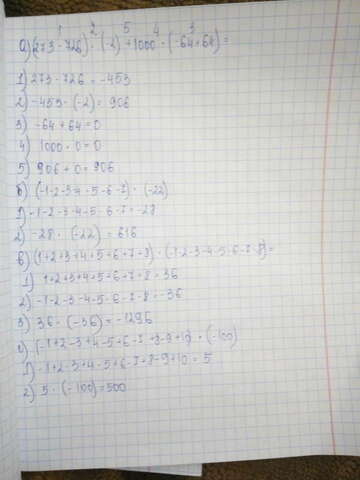 1 2 5 4 3
а) (273-726) · (-2) + 1000 · (-64+64) =
1) 273-726 = -453
2) -453 · (-2) = 906
3) -64+64=0
4) 1000 · 0 = 0
5) 906 + 0 = 906
б) (-1-2-3-4-5-6-7) · (-22)
1) -1-2-3-4-5-6-7=-28
2) -28 · (-22) = 616
в) (1+2+3+4+5+6+7+8) · (-1-2-3-4-5-6-7-8)=
1) 1+2+3+4+5+6+7+8=36
2) -1-2-3-4-5-6-7-8=-36
3) 36 · (-36) = -1296
г) (-1+2-3+4-5+6-7+8-9+10) · (-100)
1) -1+2-3+4-5+6-7+8-9+10 = 5
2) 5 · (-100)=500